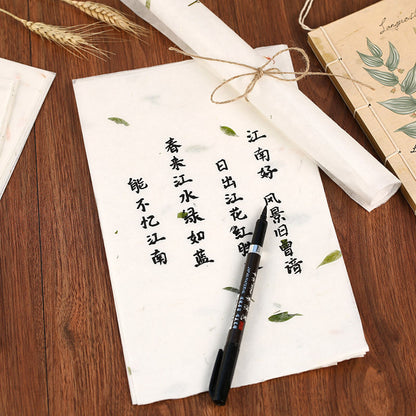 江南好
风景旧曾谙
日出江花红胜
春来江水绿如蓝
能不忆江南